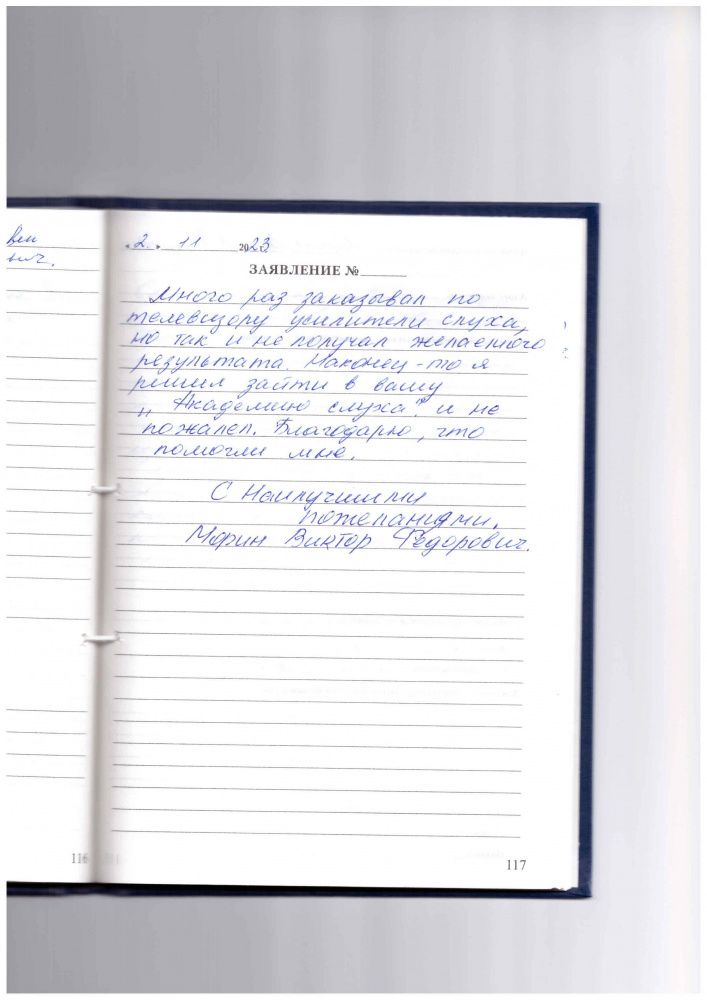 вам
ыч.
„ 2. „ 11 2023
ЗАЯВЛЕНИЕ №
Много раз заказывал по
телевизору усилители слуха,
но так и не получал желаемого
результата. Наконец-то я
решил зайти в вашу
„Академию слуха“ и не
пожалел. Благодарю, что
помогли мне.
С Наилучшими
пожеланиями.
Морин Виктор Федорович.
116
117